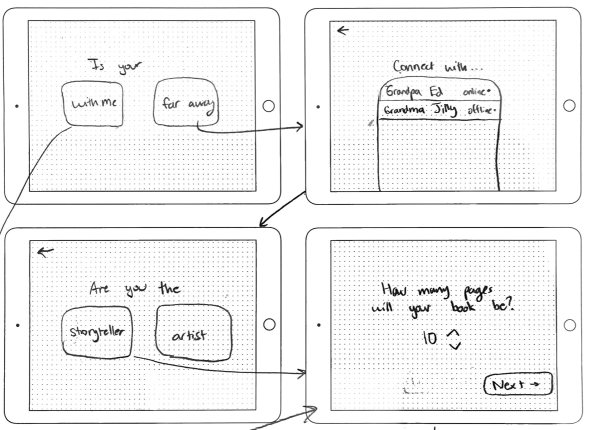 Is your
with me
far away
Connect with...
Grandpa Ed online
Grandma Jilly offline
Are you the
storyteller
artist
How many pages
will your book be?
10
Next →